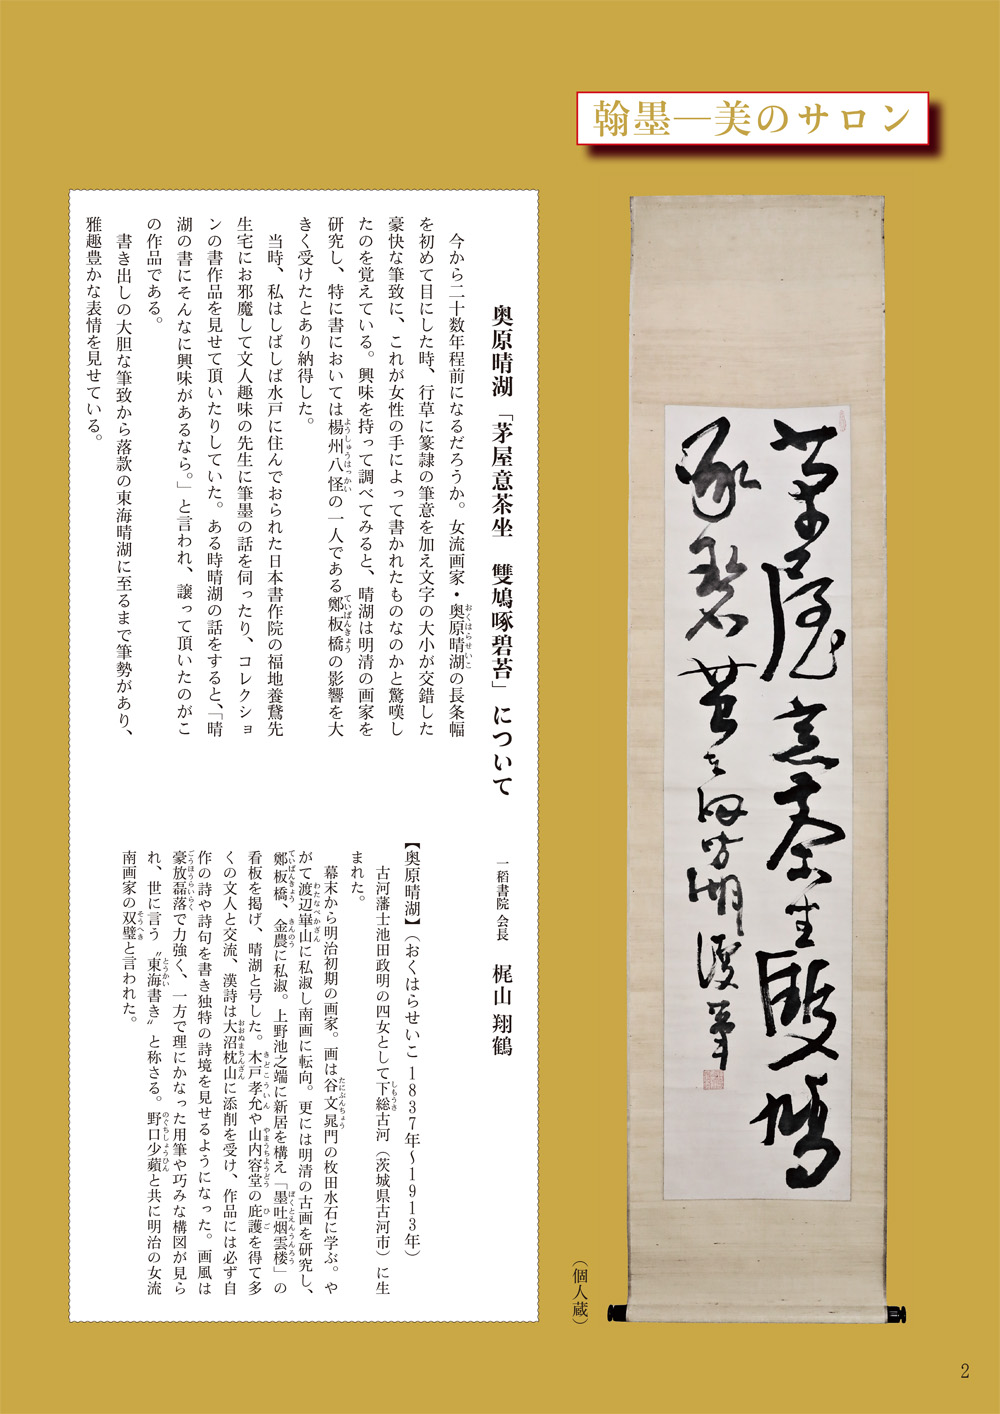 翰墨―美のサロン
茅屋意茶坐雙鳩
啄碧苔
東海晴湖
(個人蔵)
奥原晴湖「茅屋意茶坐　雙鳩啄碧苔」について
一稻書院 会長　梶山 翔鶴
今から二十数年程前になるだろうか。女流画家・奥原晴湖の長条幅
おくはらせいこ
を初めて目にした時、行草に篆隷の筆意を加え文字の大小が交錯した
豪快な筆致に、これが女性の手によって書かれたものなのかと驚嘆し
たのを覚えている。興味を持って調べてみると、晴湖は明清の画家を
研究し、特に書においては楊州八怪の一人である鄭板橋の影響を大
ようしゅうはっかい
ていばんきょう
きく受けたとあり納得した。
当時、私はしばしば水戸に住んでおられた日本書作院の福地養鵞先
生宅にお邪魔して文人趣味の先生に筆墨の話を伺ったり、コレクショ
ンの書作品を見せて頂いたりしていた。ある時晴湖の話をすると、「晴
湖の書にそんなに興味があるなら。」と言われ、譲って頂いたのがこ
の作品である。
書き出しの大胆な筆致から落款の東海晴湖に至るまで筆勢があり、
雅趣豊かな表情を見せている。
【奥原晴湖】（おくはらせいこ 1837年～1913年）
古河藩士池田政明の四女として下総古河（茨城県古河市）に生
しもうさ
まれた。
幕末から明治初期の画家。画は谷文晁門の枚田水石に学ぶ。や
たにぶんちょう
がて渡辺崋山に私淑し南画に転向。更には明清の古画を研究し、
わたなべかざん
鄭板橋、金農に私淑。上野池之端に新居を構え「墨吐烟雲楼」の
ていばんきょう
きんのう
ぼくとえんうんろう
看板を掲げ、晴湖と号した。木戸孝允や山内容堂の庇護を得て多
きどこういん
やまうちようどう
ひご
くの文人と交流、漢詩は大沼枕山に添削を受け、作品には必ず自
おおぬまちんざん
作の詩や詩句を書き独特の詩境を見せるようになった。画風は
豪放磊落で力強く、一方で理にかなった用筆や巧みな構図が見ら
ごうほうらいらく
れ、世に言う〝東海書き〟と称さる。野口少蘋と共に明治の女流
とうかい
のぐちしょうひん
南画家の双璧と言われた。
そうへき
2